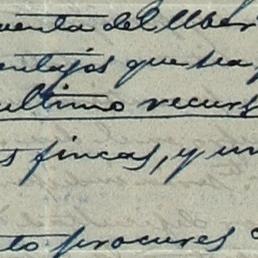 uenta del Uber
entajos que sea
ultimo recurs
s fincas, y un
to procures